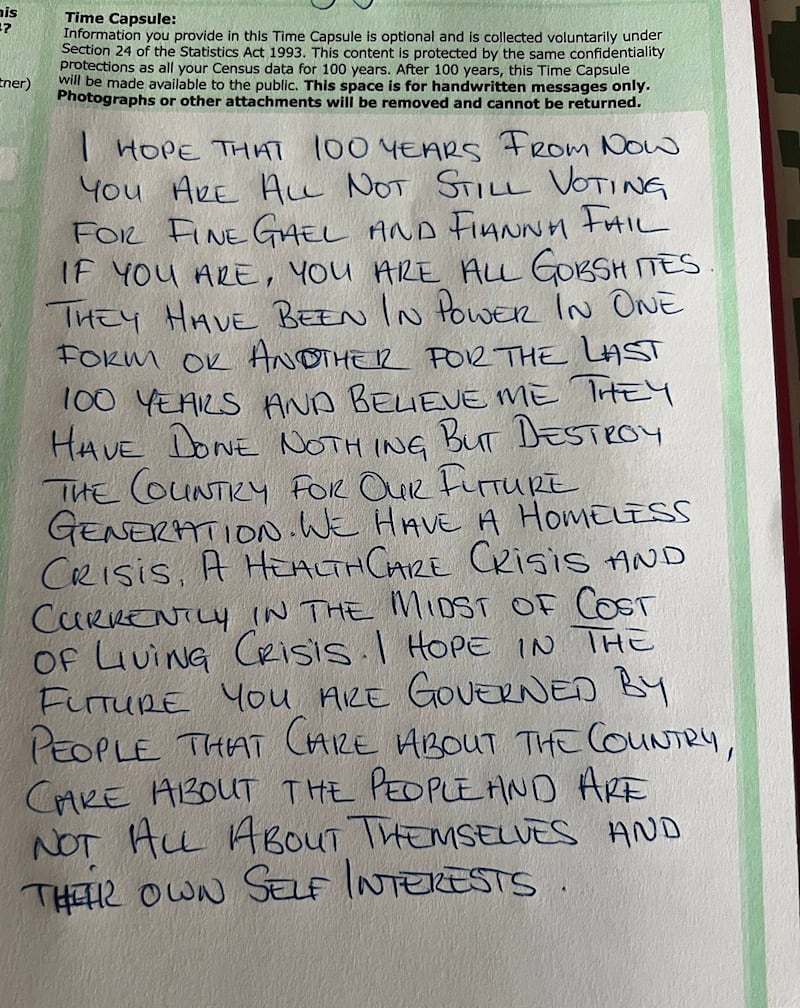 his
?
tner)
Time Capsule:
Information you provide in this Time Capsule is optional and is collected voluntarily under
Section 24 of the Statistics Act 1993. This content is protected by the same confidentiality
protections as all your Census data for 100 years. After 100 years, this Time Capsule
will be made available to the public. This space is for handwritten messages only.
Photographs or other attachments will be removed and cannot be returned.
I HOPE THAT 100 YEARS FROM NOW
YOU ARE ALL NOT STILL VOTING
FOR FINE GAEL AND FIANNA FAIL
IF YOU ARE, YOU ARE ALL GOBSHITES.
THEY HAVE BEEN IN POWER IN ONE
FORM OR ANOTHER FOR THE LAST
100 YEARS AND BELIEVE ME THEY
HAVE DONE NOTHING BUT DESTROY
THE COUNTRY FOR OUR FUTURE
GENERATION. WE HAVE A HOMELESS
CRISIS, A HEALTHCARE CRISIS AND
CURRENTLY IN THE MIDST OF COST
OF LIVING CRISIS. I HOPE IN THE
FUTURE YOU ARE GOVERNED BY
PEOPLE THAT CARE ABOUT THE COUNTRY,
CARE ABOUT THE PEOPLE AND ARE
NOT ALL ABOUT THEMSELVES AND
THEIR OWN SELF INTERESTS.